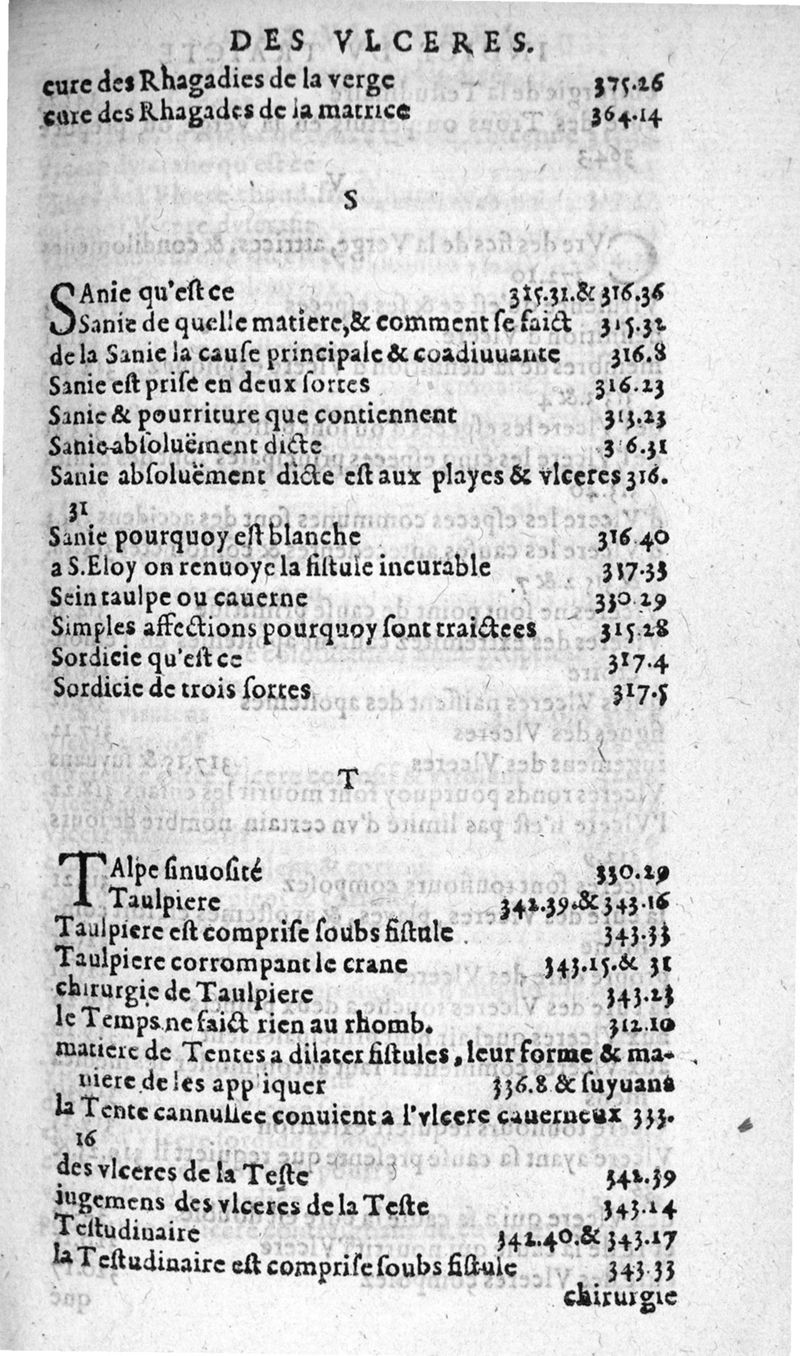 DES VLCERES.
cure des Rhagadies de la verge 375.26
cure des Rhagades de la matrice 364.14
S
SAnie qu'est ce 315.31.& 316.36
Sanie de quelle matiere,& comment se faict 315.32
de la Sanie la cause principale & coadiuuante 316.8
Sanie est prise en deux sortes 316.23
Sanie & pourriture que contiennent 313.23
Sanie absoluëment dicte 3 6.31
Sanie absoluëment dicte est aux playes & vlceres 316.
31
Sanie pourquoy est blanche 316.40
a S.Eloy on renuoye la fistule incurable 317.33
Sein taulpe ou cauerne 330.29
Simples affections pourquoy sont traictees 315.28
Sordicie qu'est ce 317.4
Sordicie de trois sortes 317.5
T
TAlpe sinuosité 330.29
Taulpiere 342.39.& 343.16
Taulpiere est comprise soubs fistule 343.33
Taulpiere corrompant le crane 343.15.& 31
chirurgie de Taulpiere 343.23
le Temps ne faict rien au rhomb. 312.10
matiere de Tentes a dilater fistules, leur forme & ma-
niere de les app iquer 336.8 & suyuans
la Tente cannullee conuient a l'vlcere cauerneux 333.
16
des vlceres de la Teste 342.39
iugemens des vlceres de la Teste 343.14
Testudinaire 342.40.& 343.17
la Testudinaire est comprise soubs fistule 343.33
chirurgie